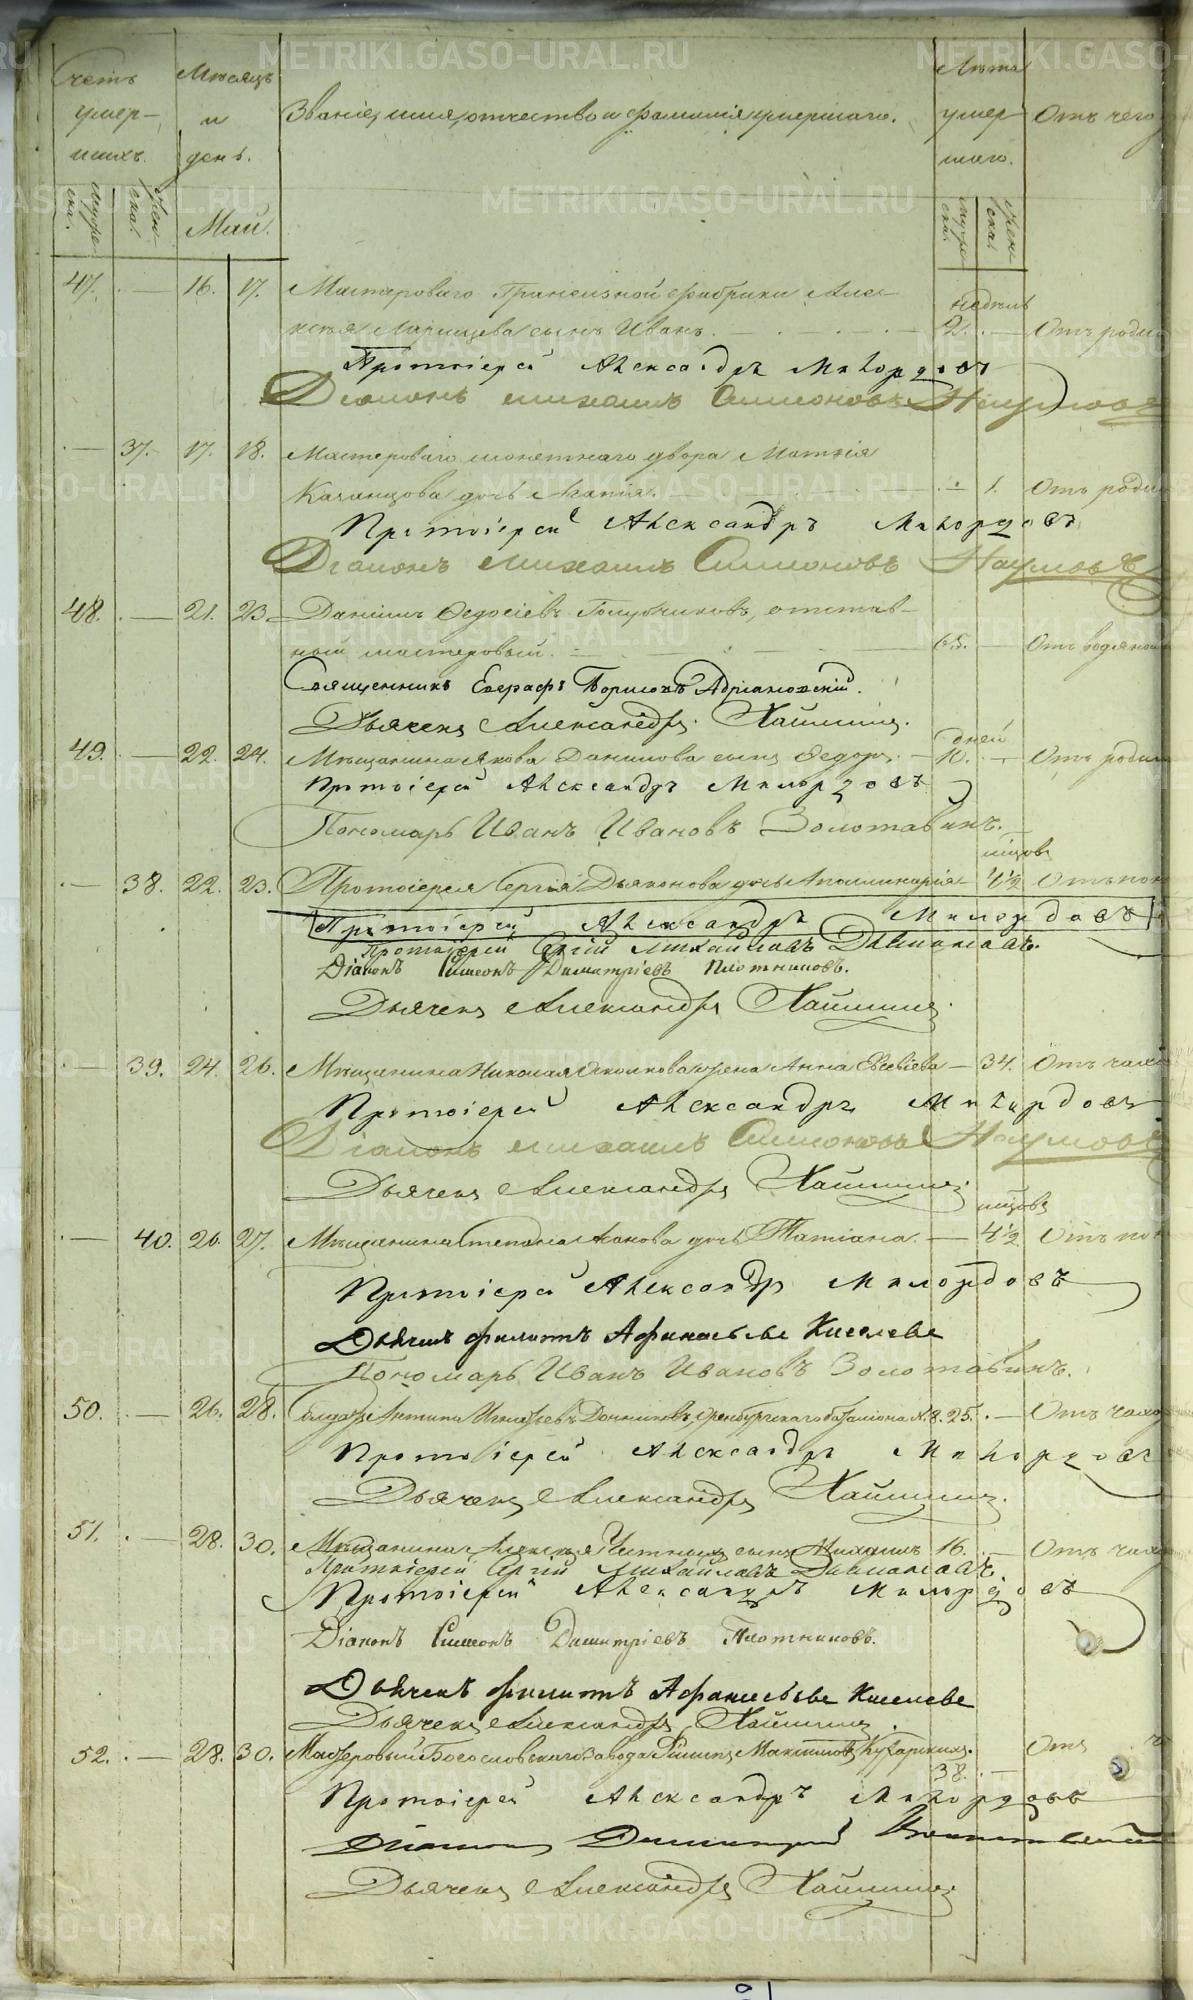 Счетъ умер- шихъ.
Мѣсяцъ и день.
Званіе, имя, отчество и фамилія умершаго.
Лѣта умер шаго.
Отъ чего
муже ска. жен ска.
Май.
муже ска. жен ска.
47. — 16. 17. Мастероваго Гранильной фабрики Алек-
недѣль
сѣя сынъ Иванъ. 2. — Отъ роди
Протоіерей Александръ Милордовъ
Діаконъ Михаилъ Симоновъ Наумовъ
— 37. 17. 18. Мастероваго монетнаго двора Матвѣя
дочь Марія. 1. Отъ роди
Протоіерей Александръ Милордовъ
Діаконъ Михаилъ Симоновъ Наумовъ
48. — 21. 23. Даніилъ Ѳедосіевъ Голубчиковъ, отстав-
ный мастеровый. 65. — Отъ водяной
Священникъ Евграфъ Борисовъ Адріановскій.
Дьячекъ Александръ Хаминъ.
дней
49. — 22. 24. Мѣщанина Якова Данилова сынъ Ѳедоръ. — 10. — Отъ роди
Протоіерей Александръ Милордовъ
Пономарь Иванъ Ивановъ Золотавинъ.
мцовъ
— 38. 22. 23. Протоіерея Сергія Дьяконова дочь Аполлинарія — 4½ Отъ пон
Протоіерей Александръ Милордовъ
Протоіерей Сергій Михайловъ Дьяконовъ.
Діаконъ Симеонъ Димитріевъ Плотниковъ.
Дьячекъ Александръ Хаминъ.
— 39. 24. 26. Мѣщанина Николая жена Анна Евсевіева — 34. Отъ чахо
Протоіерей Александръ Милордовъ
Діаконъ Михаилъ Симоновъ Наумовъ
Дьячекъ Александръ Хаминъ.
мцовъ
— 40. 26. 27. Мѣщанина Степана дочь Татіана. — 4½ Отъ пон
Протоіерей Александръ Милордовъ
Дьячекъ Филатъ Афанасьевъ Киселевъ
Пономарь Иванъ Ивановъ Золотавинъ.
50. — 26. 28. Солдатъ Антипъ Игнатьевъ Оренбургскаго баталіона №. 8. 25. — Отъ чахо
Протоіерей Александръ Милордовъ
Дьячекъ Александръ Хаминъ.
51. — 28. 30. Мѣщанина Алексѣя сынъ Михаилъ 16. — Отъ чахо
Протоіерей Сергій Михайловъ Дьяконовъ.
Протоіерей Александръ Милордовъ
Діаконъ Симеонъ Димитріевъ Плотниковъ.
Дьячекъ Филатъ Афанасьевъ Киселевъ
Дьячекъ Александръ Хаминъ.
52. — 28. 30. Мастеровый Богословскаго завода Филипъ Максимовъ Кухарскихъ.
38. — Отъ ч
Протоіерей Александръ Милордовъ
Діаконъ Димитрій
Дьячекъ Александръ Хаминъ
METRIKI.GASO-URAL.RU